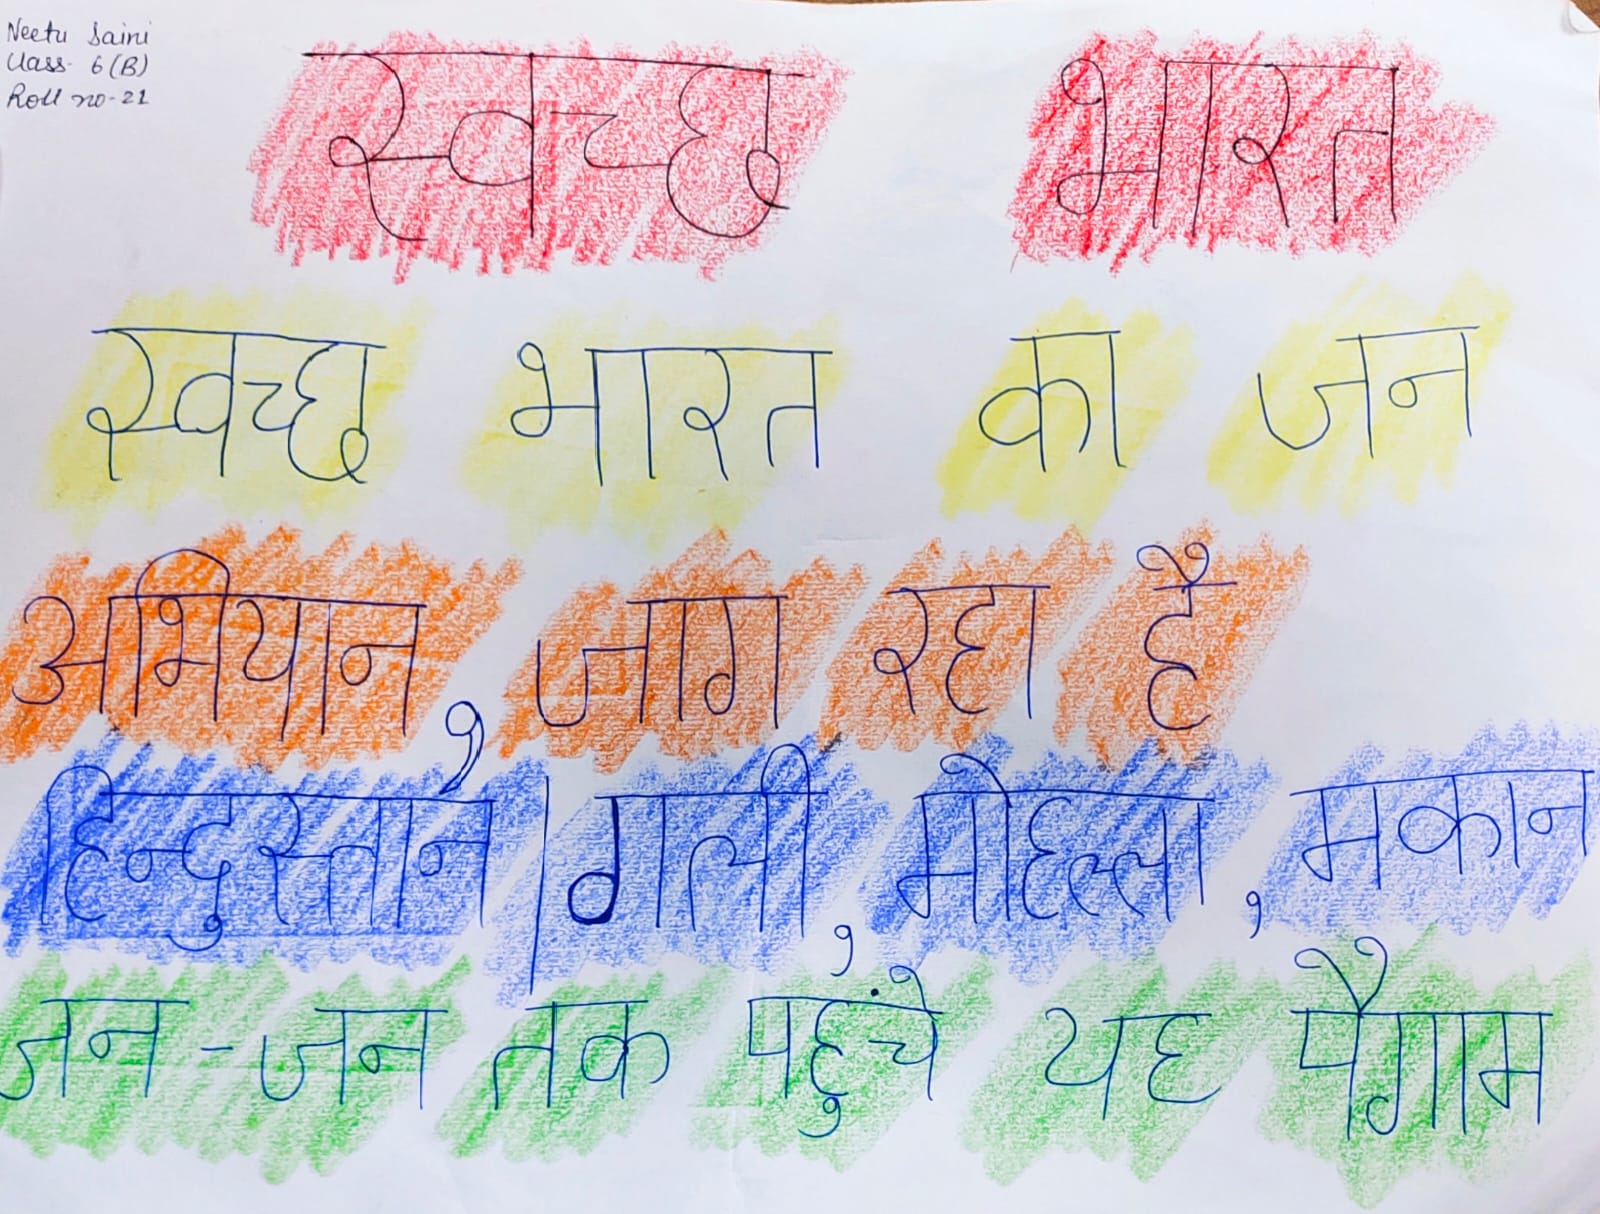 Neetu Saini
Class- 6(B)
Roll no-21
स्वच्छ भारत
स्वच्छ भारत का जन
अभियान, जाग रहा है
हिन्दुस्तान। गली, मोहल्ला, मकान
जन-जन तक पहुंचे यह पैगाम